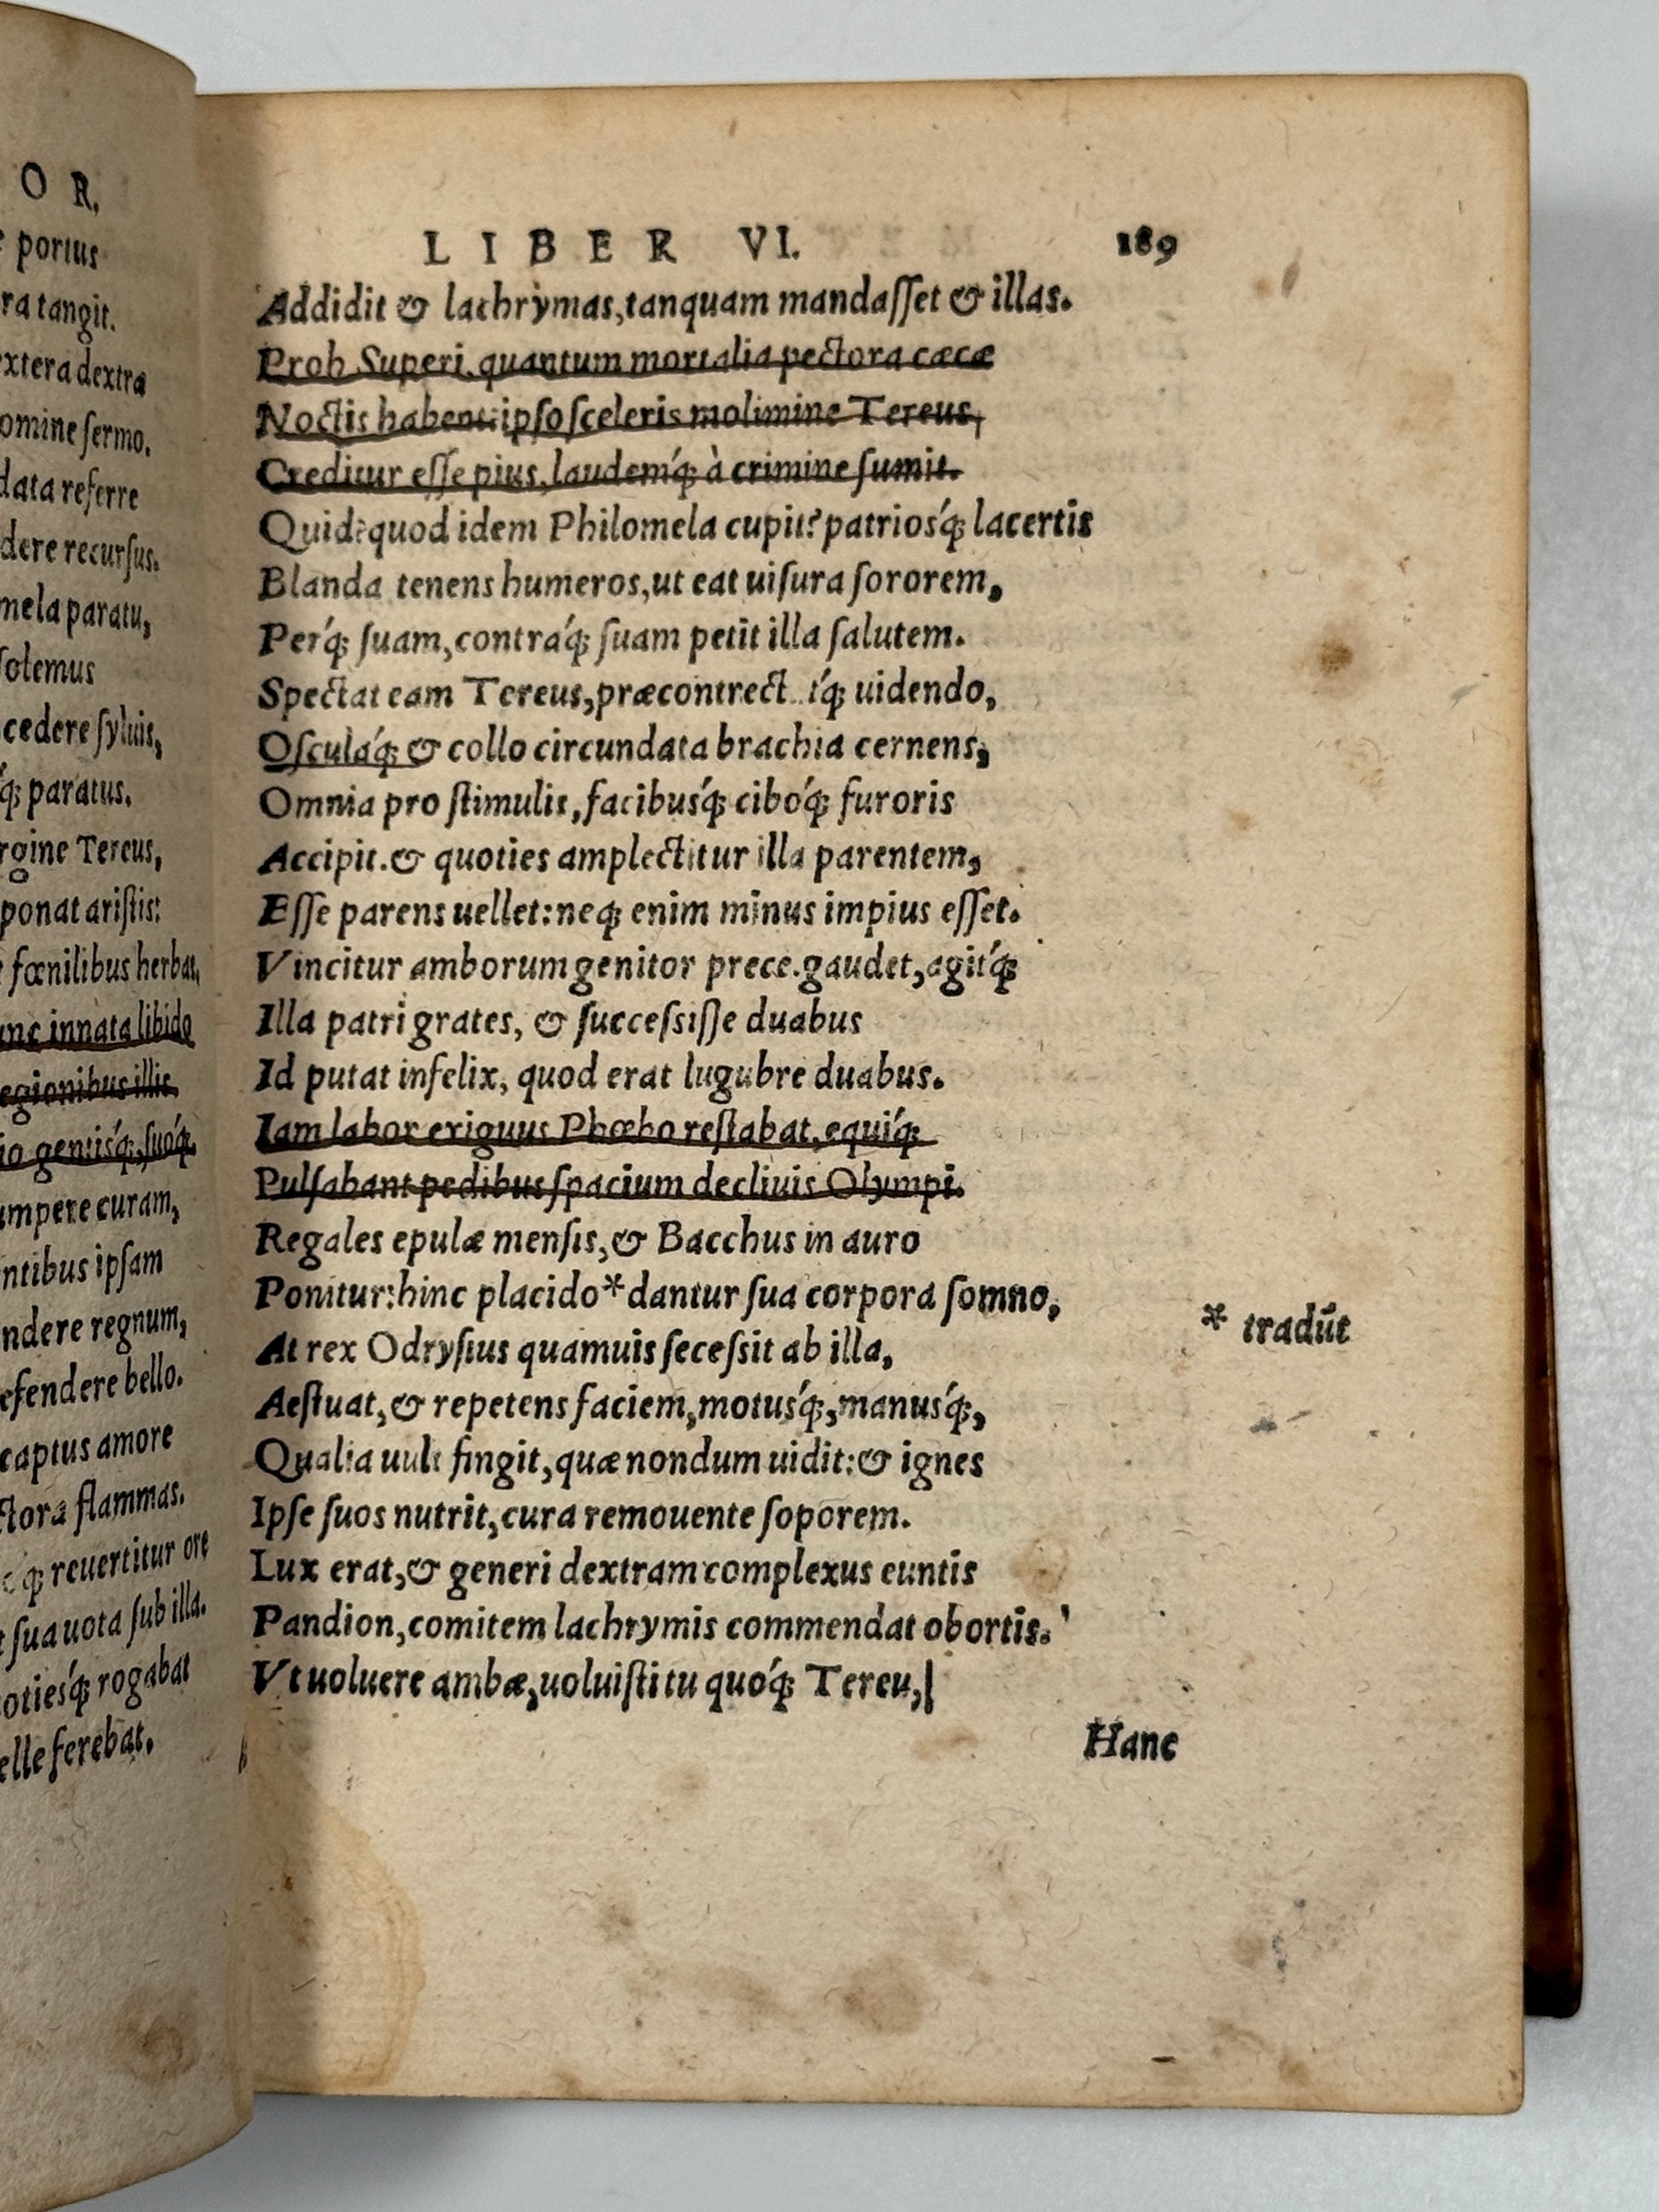 OR,
portus
ra tangit.
xtera dextra
omine ſermo.
data referre
dere recurſus.
mela paratu,
ſolemus
cedere ſyluis,
q́; paratus.
rgine Tereus,
ponat ariſtis:
fœnilibus herbas,
unc innata libido
egionibus illic
io gentisq́;, ſuoq́;
umpere curam,
ntibus ipſam
ndere regnum,
efendere bello.
captus amore
ctora flammas.
q; reuertitur ore
ſua uota ſub illa.
otiesq́; rogabat
elle ferebat.
LIBER VI. 189
Addidit & lachrymas, tanquam mandaſſet & illas.
Proh Superi, quantum mortalia pectora cæcæ
Noctis habent: ipſo ſceleris molimine Tereus,
Creditur eſſe pius, laudemq́; à crimine ſumit.
Quid? quod idem Philomela cupit? patriosq́; lacertis
Blanda tenens humeros, ut eat uiſura ſororem,
Perq́; ſuam, contraq́; ſuam petit illa ſalutem.
Spectat eam Tereus, præcontrect tq́; uidendo,
Oſculaq́; & collo circundata brachia cernens,
Omnia pro ſtimulis, facibusq́; ciboq́; furoris
Accipit. & quoties amplectitur illa parentem,
Eſſe parens uellet: neq; enim minus impius eſſet.
Vincitur amborum genitor prece. gaudet, agitq́;
Illa patri grates, & ſucceſsiſſe duabus
Id putat infelix, quod erat lugubre duabus.
Iam labor exiguus Phœbo reſtabat, equiq́;
Pulſabant pedibus ſpacium decliuis Olympi.
Regales epulæ menſis, & Bacchus in auro
Ponitur: hinc placido * dantur ſua corpora ſomno,
* tradūt
At rex Odryſius quamuis ſeceſsit ab illa,
Aeſtuat, & repetens faciem, motusq́;, manusq́;,
Qualia uult fingit, quæ nondum uidit: & ignes
Ipſe ſuos nutrit, cura remouente ſoporem.
Lux erat, & generi dextram complexus euntis
Pandion, comitem lachrymis commendat obortis.
Vt uoluere ambæ, uoluiſti tu quoq́; Tereu,
Hanc